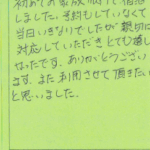 初めてお家族旅行で宿泊
しました。予約もしていなくて
当日いきなりでしたが親切に
対応していただきとても嬉し
かったです。ありがとうござい
ます。また利用させて頂きたい
と思いました。